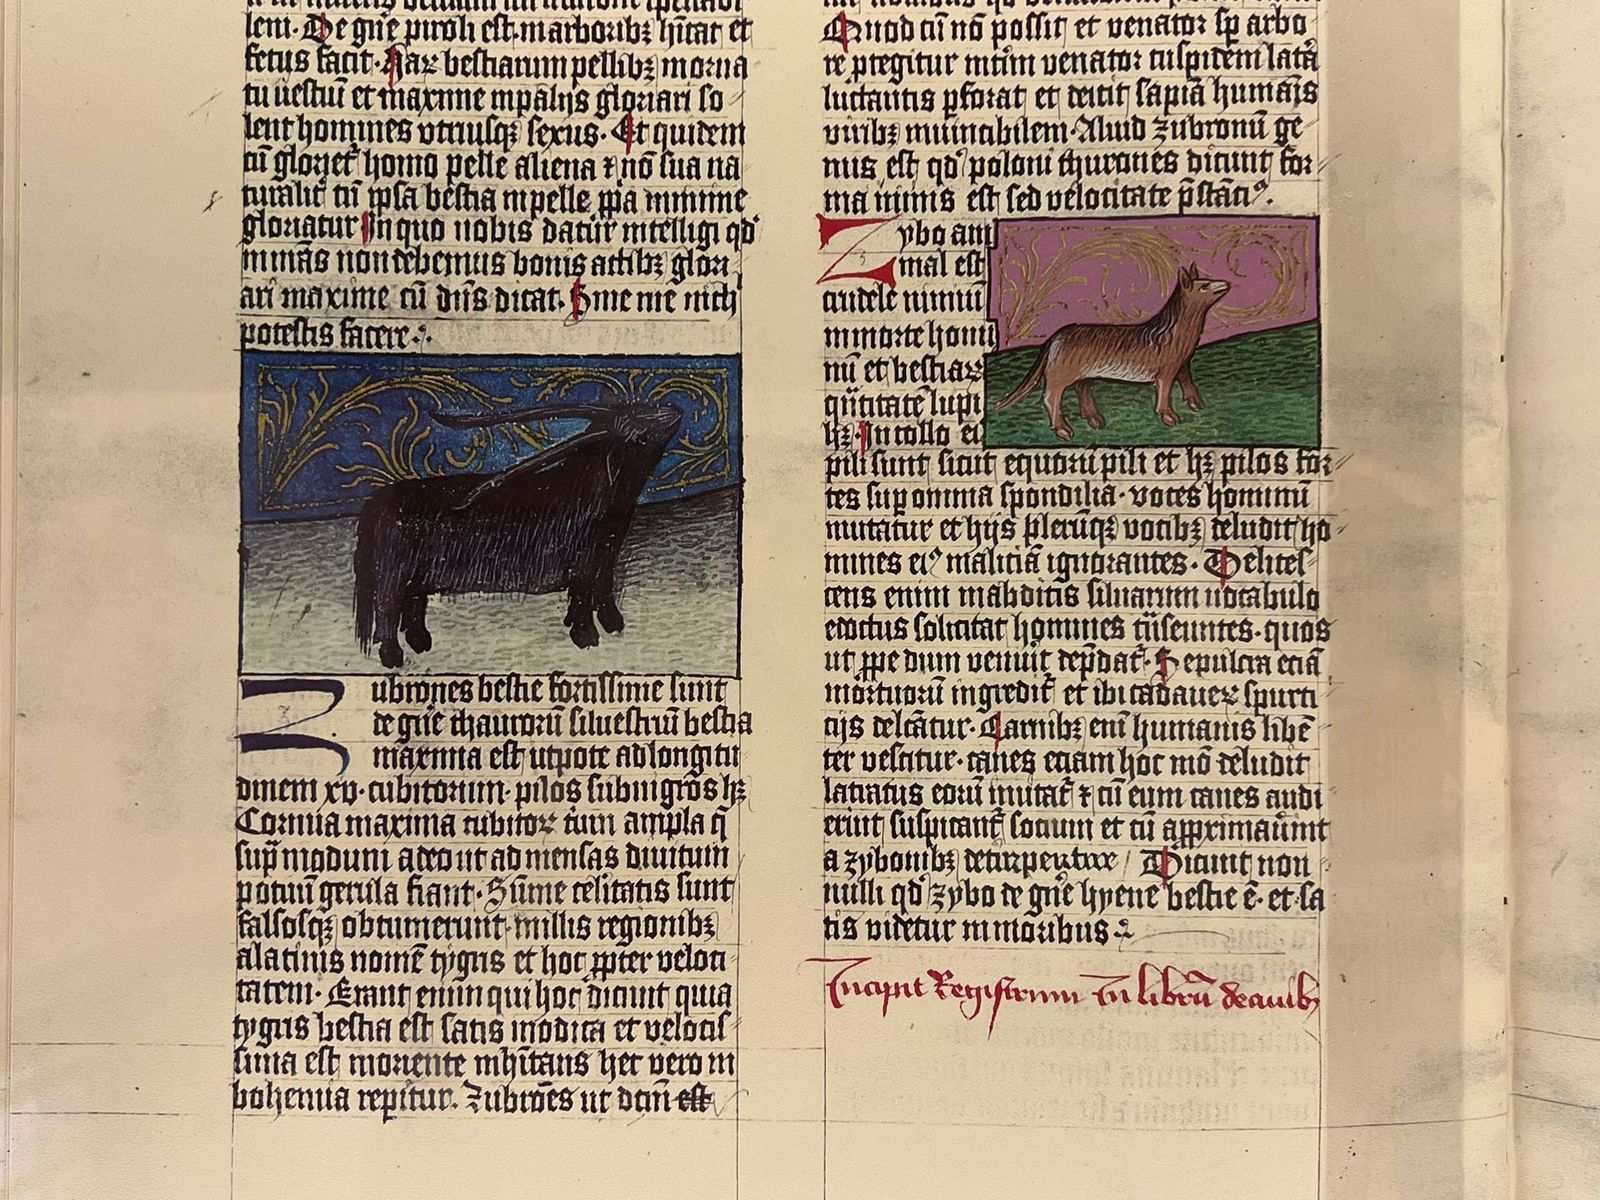 leni. De gn̄e piroli est. marboribꝫ hītat et
fetus facit. Haꝝ bestiarum pellibꝫ morna
tu uestiū et maxime in palijs gloriari so
lent homines utriusqꝫ sexus. Et quidem
cū gloriet᷑ homo pelle aliena ⁊ nō sua na
turalit᷑ cū ipsa bestia in pelle ꝓpa minime
gloriatur In quo nobis datur intelligi qd̓
in minās non debemus bonis actibꝫ glori
ari maxime cū dn̄s dicat. Sine me nich
potestis facere.
Zubrones bestie fortissime sunt
de gn̄e thaurorū siluestriū bestia
maxima est utpote ad longitu
dinem xv. cubitorum. pilos subnigros hꝫ
Cornua maxima cubitoꝝ trium ampla q̄
supͣ modum adeo ut ad mensas diuitum
potuū gerula fiant. Sūme celitatis sunt
falsosqꝫ obtinuerunt in illis regionibꝫ
a latinis nomē tygris et hoc ꝓpter veloci
tatem. Errant enim qui hoc dicunt quia
tygris bestia est satis modica et velocis
sima est in oriente inhītans hec vero in
bohemia repitur. Zubrōes ut dcm̄ est
Quod cū nō possit et venator sp̄ arbo
re ꝓtegitur intīm venator cuspidem latā
luctantis ꝑforat et deicit sapiā humanis
viribꝫ inuincibilem. Aliud zubronū ge
nus est qd̓ poloni thurones dicunt for
ma minus est sed velocitate p̄stātiꝰ.
Zybo ani
mal est
crudele nimiū
in morte homi
nū et bestiaꝝ
qūtitatē lupi
hꝫ. In collo ei
pili sunt sicut equorū pili et hꝫ pilos for
tes suꝑ omnia spondilia. voces hominū
mutatur et hijs pleruqꝫ vocibꝫ deludit ho
mines eiꝰ maliciā ignorantes. Delites
cens enim in abditis siluarum uocabulo
edoctus solicitat homines trāseuntes. quos
ut ꝓpe dum venint dep̄dat᷑. Sepulcra eciā
mortuorū ingredit᷑ et ibi cadaueꝝ spurci
cijs delc̄atur. Carnibꝫ enī humanis libē
ter vescitur. canes eciam hoc mō deludit
latratus eorū mutat᷑ ⁊ cū eum canes audi
erint suspicant᷑ socium et cū apꝓximauīnt
a zybonibꝫ decerpentur / Dicunt non
nulli qd̓ zybo de gn̄e hyene bestie ē. et sa
tis videtur in moribus.
Incipit Registrum In librū de auibꝫ